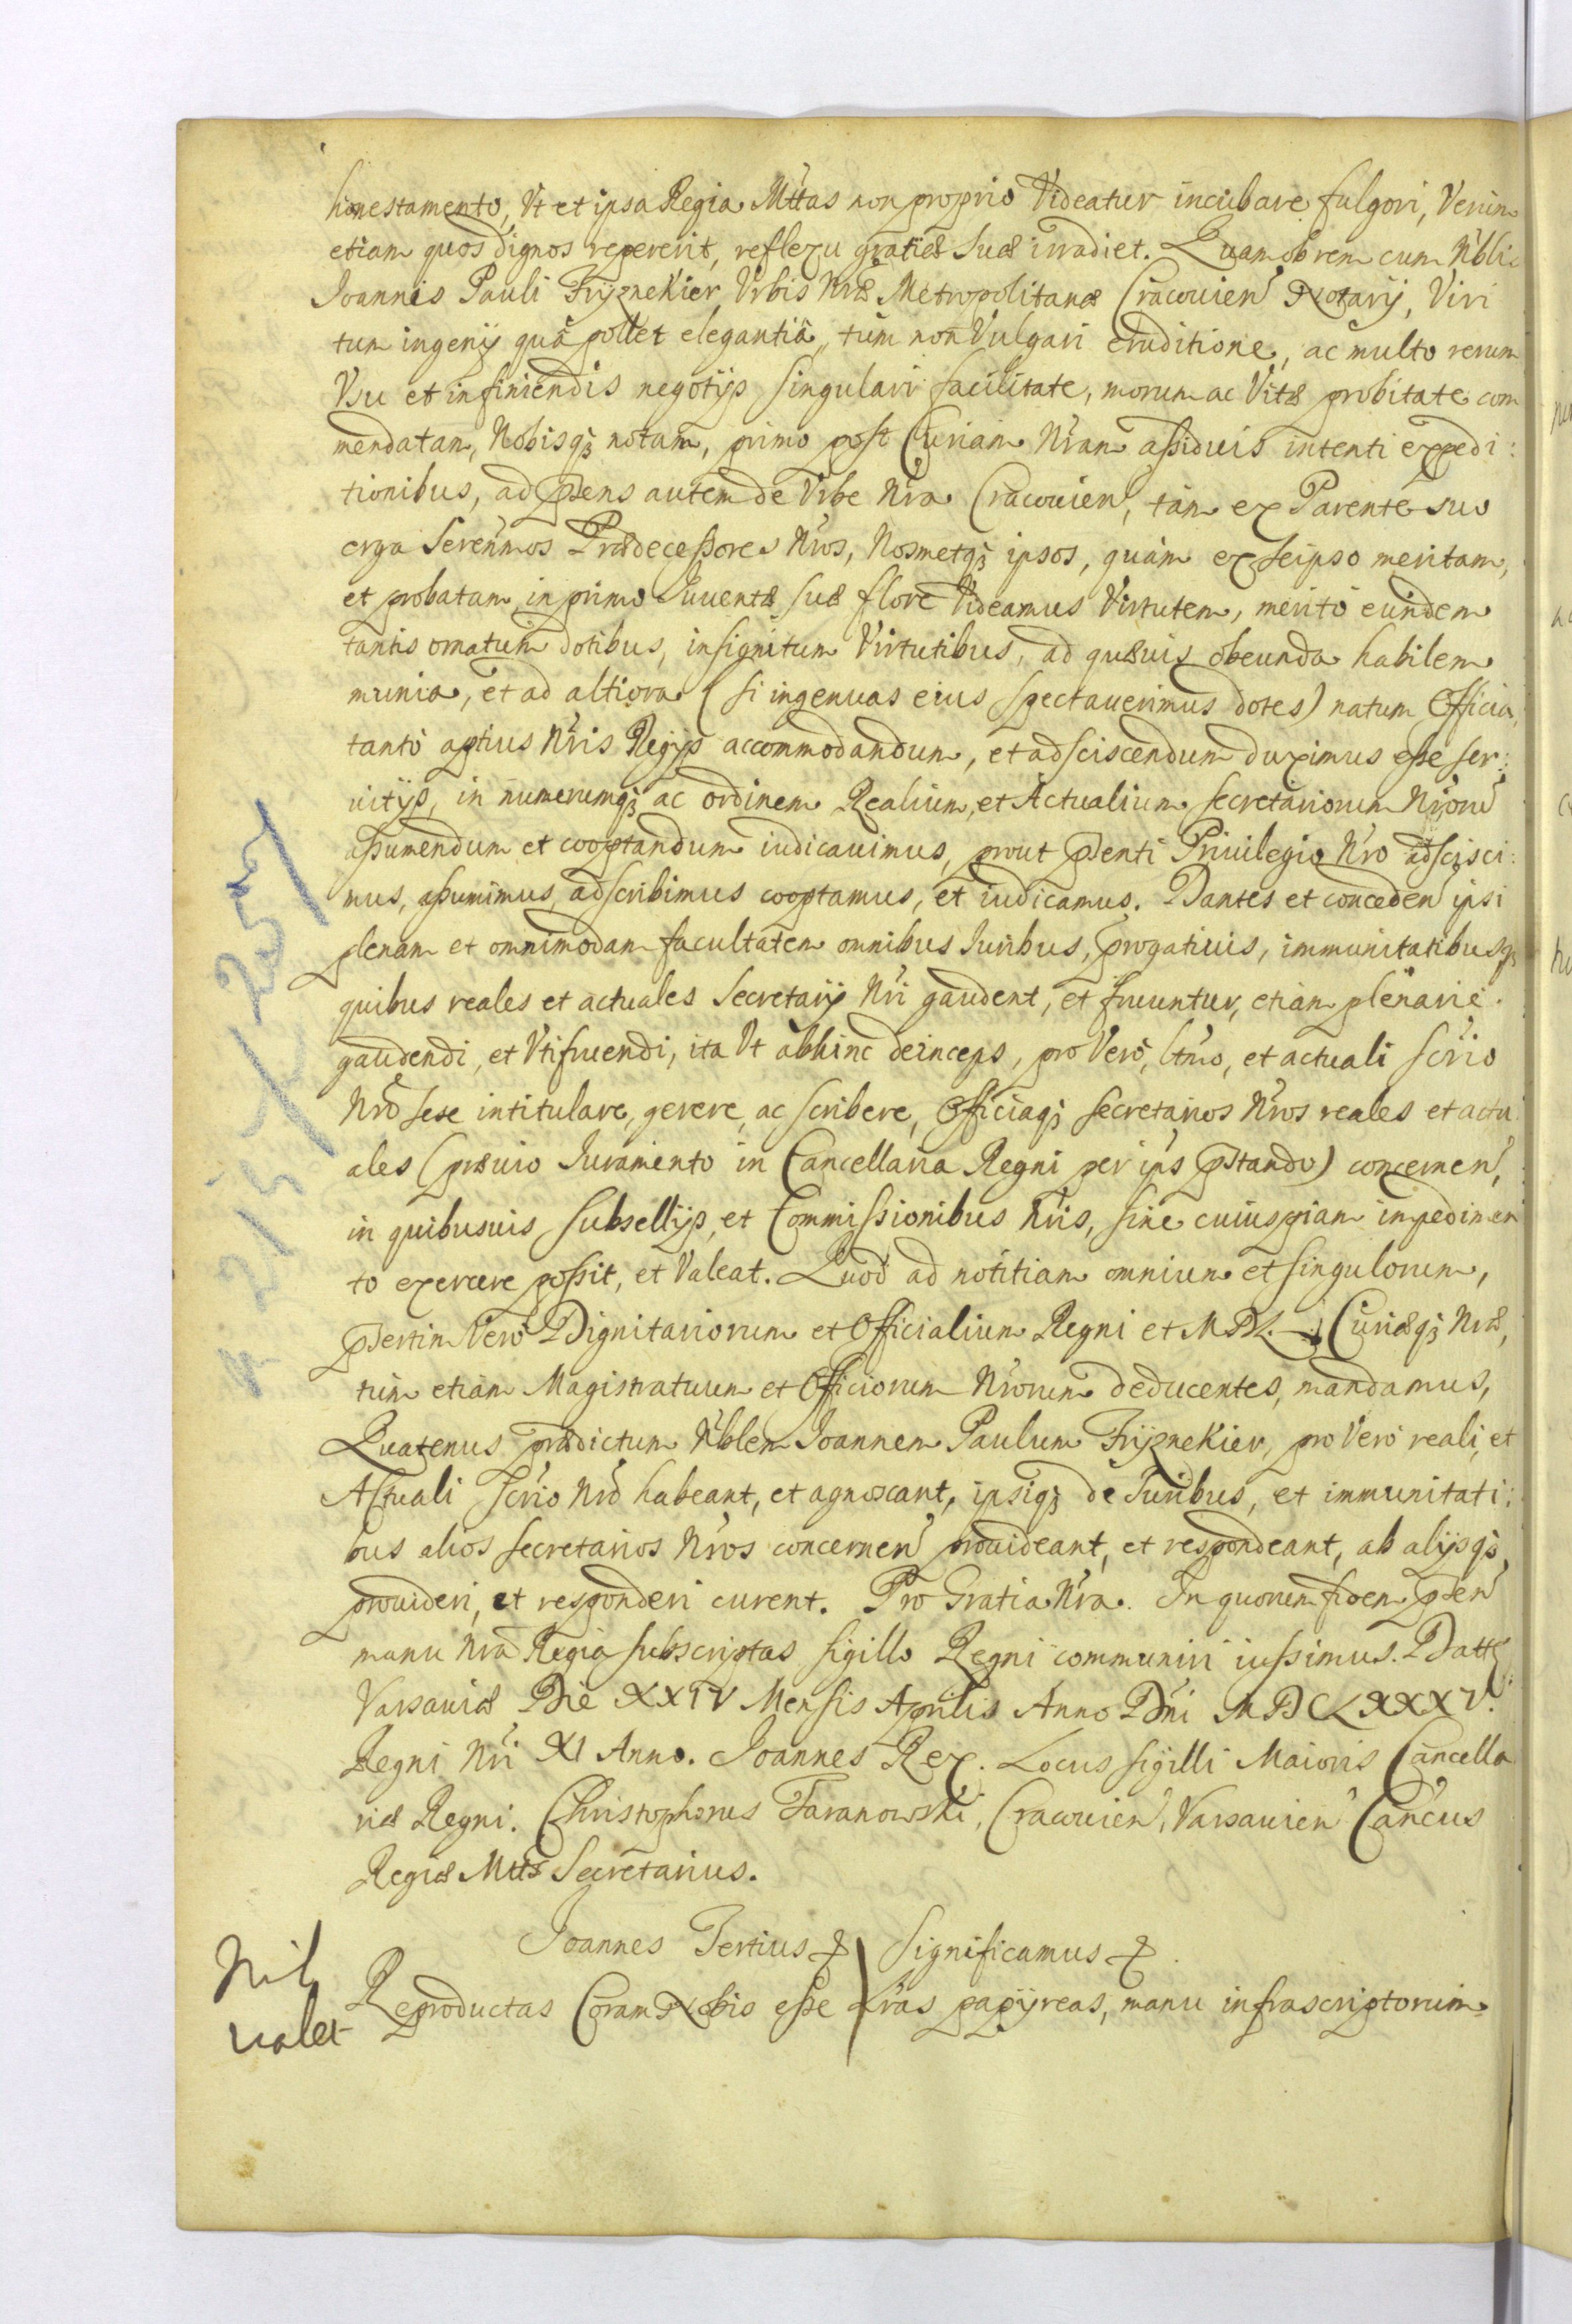 honestamento, Vt et ipsa Regia Mttas non proprio Videatur incubare fulgori, Verum
etiam quos dignos repererit, reflexu gratiæ suæ irradiet. Quamobrem cum Nblis
Joannis Pauli Fryznekier Vrbis Nræ Metropolitanæ Cracouien Notarij, Viri
tum ingenij quâ pollet elegantiâ, tum non Vulgari eruditione, ac multo rerum
Vsu et in finiendis negotijs singulari facilitate, morum ac Vitæ probitate com
mendatam, Nobisq3 notam, primo post Curiam Nram assiduis intenti expedi:
tionibus, ad pñens autem de Vrbe Nra Cracouien, tam ex Parente suo
erga Serenmos Prædecessores Nros, Nosmetq3 ipsos, quàm ex seipso meritam,
et probatam, in primo Iuuentæ suæ flore Videamus Virtutem, meritò eundem
tantis ornatum dotibus, insignitum Virtutibus, ad quæuis obeunda habilem
munia, et ad altiora (si ingenuas eius spectauerimus dotes) natum Officia,
tantò aptius Nris Regijs accommodandum, et adsciscendum duximus esse ser:
uitijs, in numerumq3 ac ordinem Realium, et Actualium Secretariorum Nroru
assumendum et cooptandum iudicauimus, prout pñenti Priuilegio Nro adscisci:
mus, assumimus, adscribimus cooptamus, et iudicamus. Dantes et conceden ipsi
plenam et omnimodam facultatem omnibus Iuribus, progatiuis, immunitatibusq3
quibus reales et actuales Secretarij Nri gaudent, et fruuntur, etiam plenarie
gaudendi, et Vtifruendi, ita Vt abhinc deinceps, pro Vero, ltmo, et actuali scrio
Nro sese intitulare, gerere, ac scribere, Officiaq3 Secretarios Nros reales et actu
ales (præuio Iuramento in Cancellaria Regni per ips pstando) concernen,
in quibusuis Subsellijs, et Commissionibus Nris, sine cuiuspiam impedimen
to exercere possit, et Valeat. Quod ad notitiam omnium et singulorum,
psertim Vero Dignitariorum et Officialium Regni et M D L. Curiæq3 Nræ,
tum etiam Magistratuum et Officiorum Nrorum deducentes, mandamus,
Quatenus prædictum Nblem Joannem Paulum Fryznekier, pro Vero reali, et
Actuali Scrio Nro habeant, et agnoscant, ipsiq3 de Iuribus, et immunitati:
bus alios Secretarios Nros concernen prouideant, et respondeant, ab alijsq3
prouideri, et responderi curent. Pro Gratia Nra. In quorum fidem pñen
manu Nra Regia subscriptas sigillo Regni communiri iussimus. Datt
Varsauiæ Die XXIV Mensis Aprilis Anno Dni MDCLXXXV.
Regni Nri XI Anno. Joannes Rex. Locus sigilli Maioris Cancella
riæ Regni. Christophorus Taranowski, Cracouien, Varsauien Cancus
Regiæ Mttis Secretarius.
Joannes Tertius &
Significamus &.
Nil
ualet
Reproductas Coram Nobis esse Lras papyreas, manu infrascriptorum